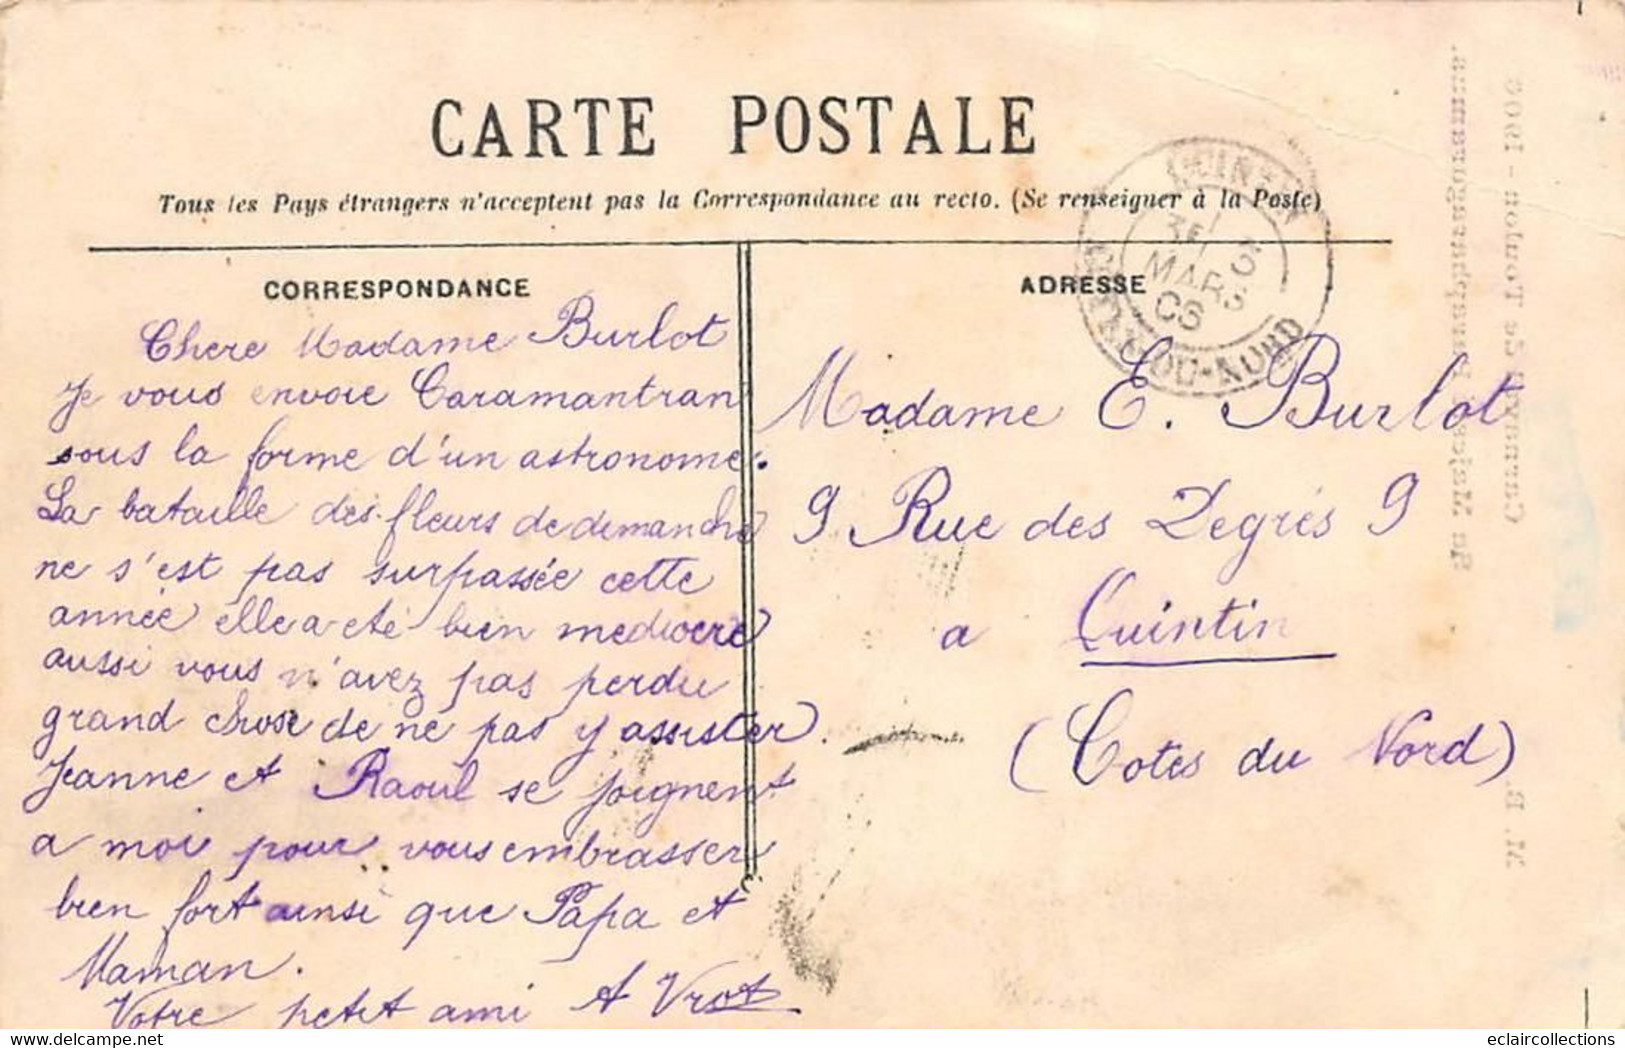 CARTE POSTALE
Tous les Pays étrangers n'acceptent pas la Correspondance au recto. (Se renseigner à la Poste)
CORRESPONDANCE
Chere Madame Burlot
Je vous envoie Caramantran
sous la forme d'un astronome.
La bataille des fleurs de dimanche
ne s'est pas surpassée cette
année elle a eté bien mediocre
aussi vous n'avez pas perdu
grand chose de ne pas y assister.
Jeanne et Raoul se joignent
a moi pour vous embrasser
bien fort ainsi que Papa et
Maman.
Votre petit ami A Vrot
ADRESSE
Madame E. Burlot
9 Rue des Degrés 9
a Quintin
(Cotes du Nord)
QUINTIN
MARS
06
COTES-DU-NORD
Carnaval de Toulon - 1906
M. B.
eclaircollections